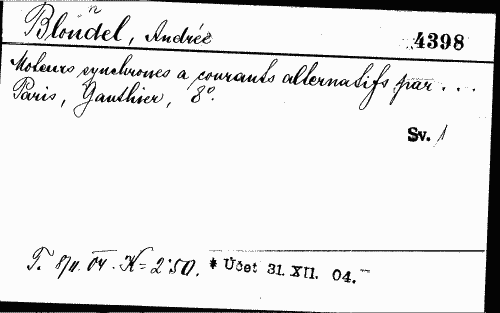 Blondel, Andrée
4398
Moteurs synchrones a courants alternatifs par . . .
Paris, Gauthier, 8°.
Sv. 1
T. 8/II. 04. K = 2·50. * Účet 31. XII. 04.